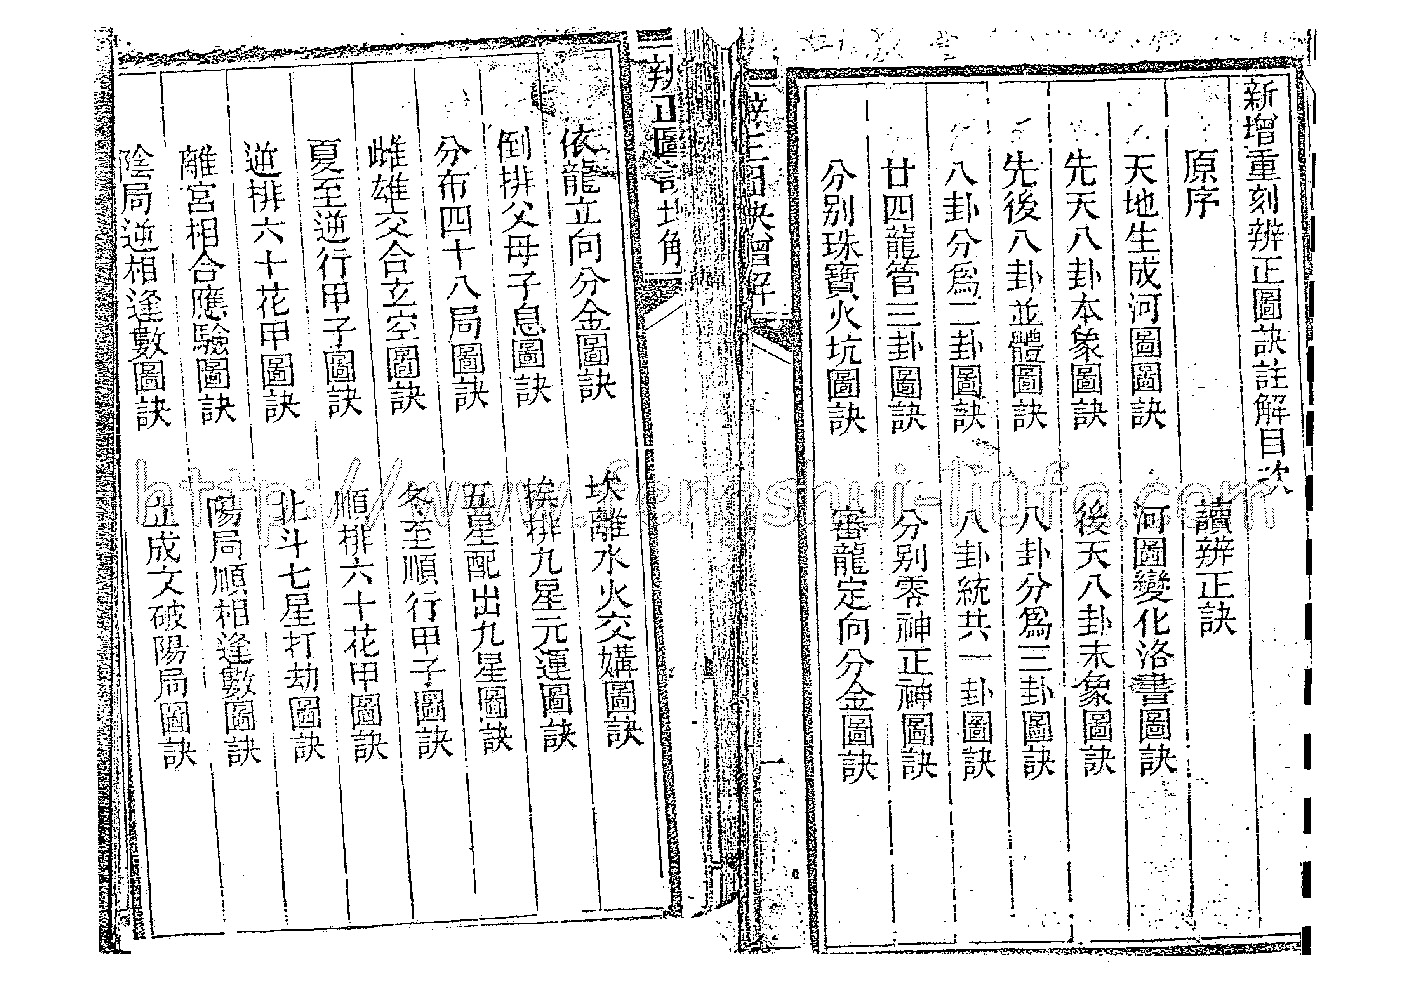 新增重刻辨正圖訣註解目次
原序　讀辨正訣
天地生成河圖圖訣　河圖變化洛書圖訣
先天八卦本象圖訣　後天八卦末象圖訣
先後八卦並體圖訣　八卦分爲三卦圖訣
八卦分爲二卦圖訣　八卦統共一卦圖訣
廿四龍管三卦圖訣　分别零神正神圖訣
分别珠寶火坑圖訣　審龍定向分金圖訣
依龍立向分金圖訣　坎離水火交媾圖訣
倒排父母子息圖訣　挨排九星元運圖訣
分布四十八局圖訣　五星配出九星圖訣
雌雄交合玄空圖訣　冬至順行甲子圖訣
夏至逆行甲子圖訣　順排六十花甲圖訣
逆排六十花甲圖訣　北斗七星打劫圖訣
離宮相合應驗圖訣　陽局順相逢數圖訣
陰局逆相逢數圖訣　立成文破陽局圖訣